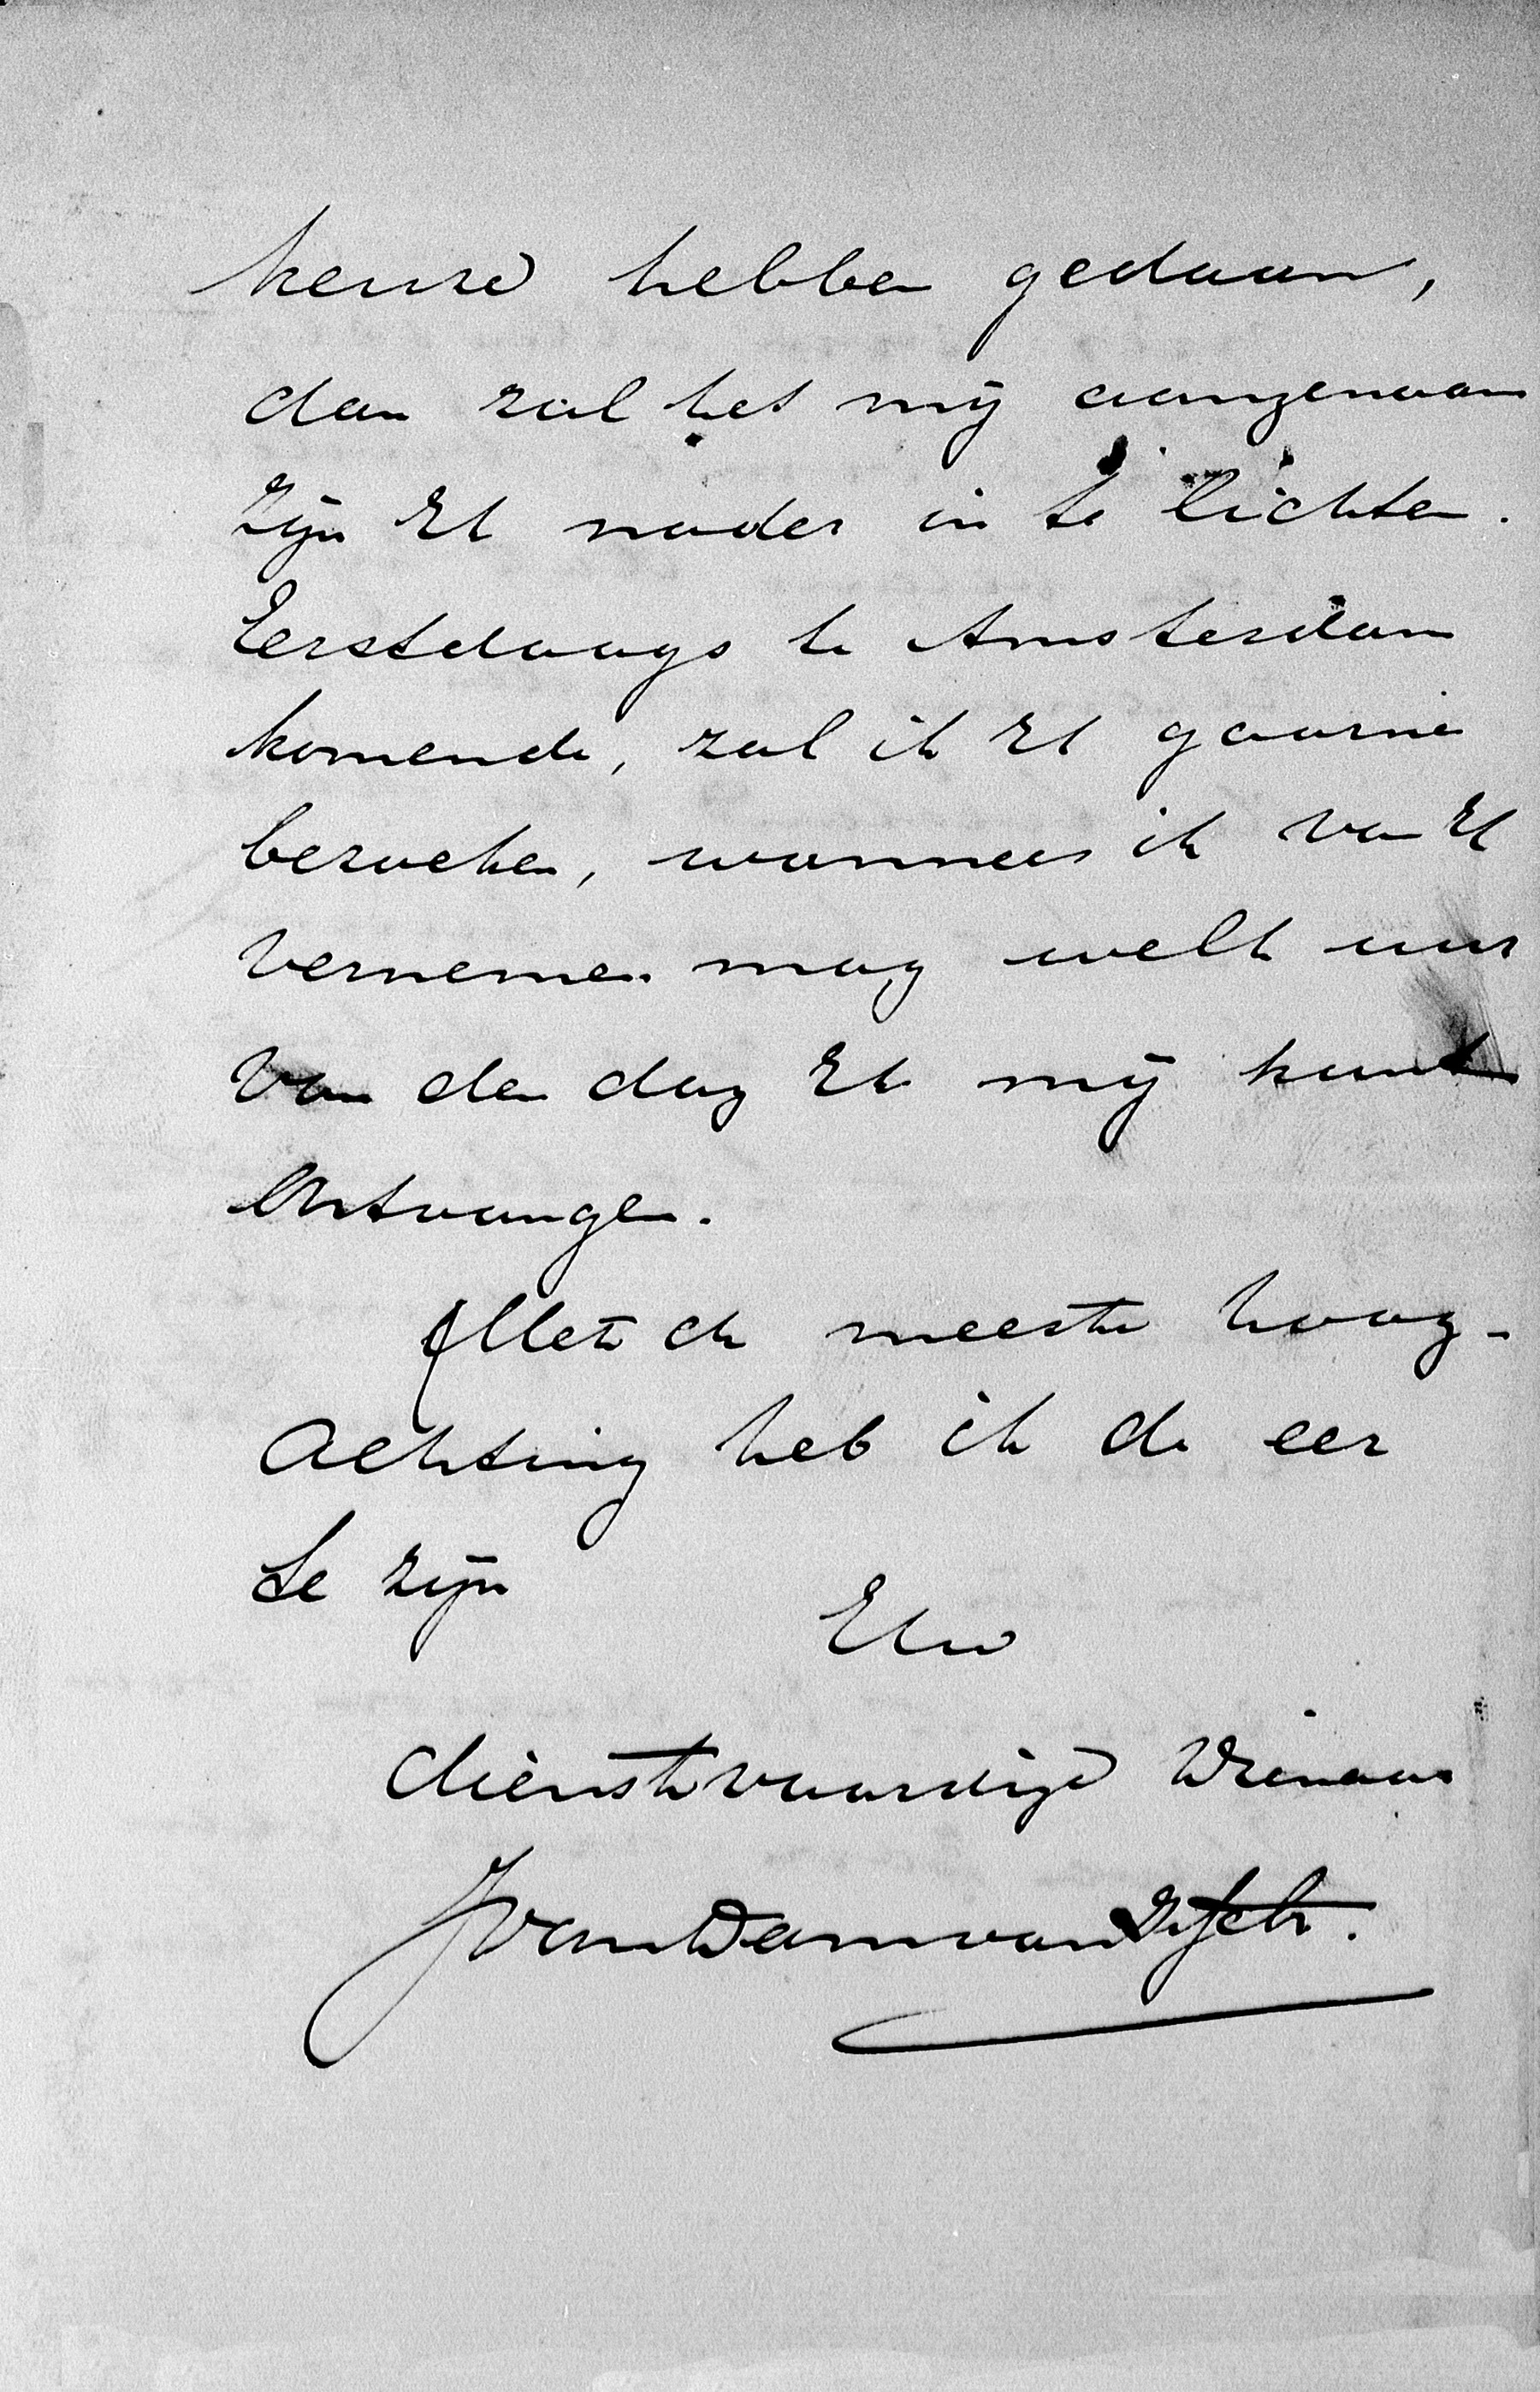 keuze hebben gedaan,
dan zal het mij aangenaam
zijn U nader in te lichten.
Eerstdaags te Amsterdam
komende, zal ik U gaarne
bezoeken, wanneer ik van U
vernemen mag welk uur
van den dag U mij kunt
ontvangen.
Met de meeste hoog-
achting heb ik de eer
te zijn
Uw
dienstvaardige Dienaar